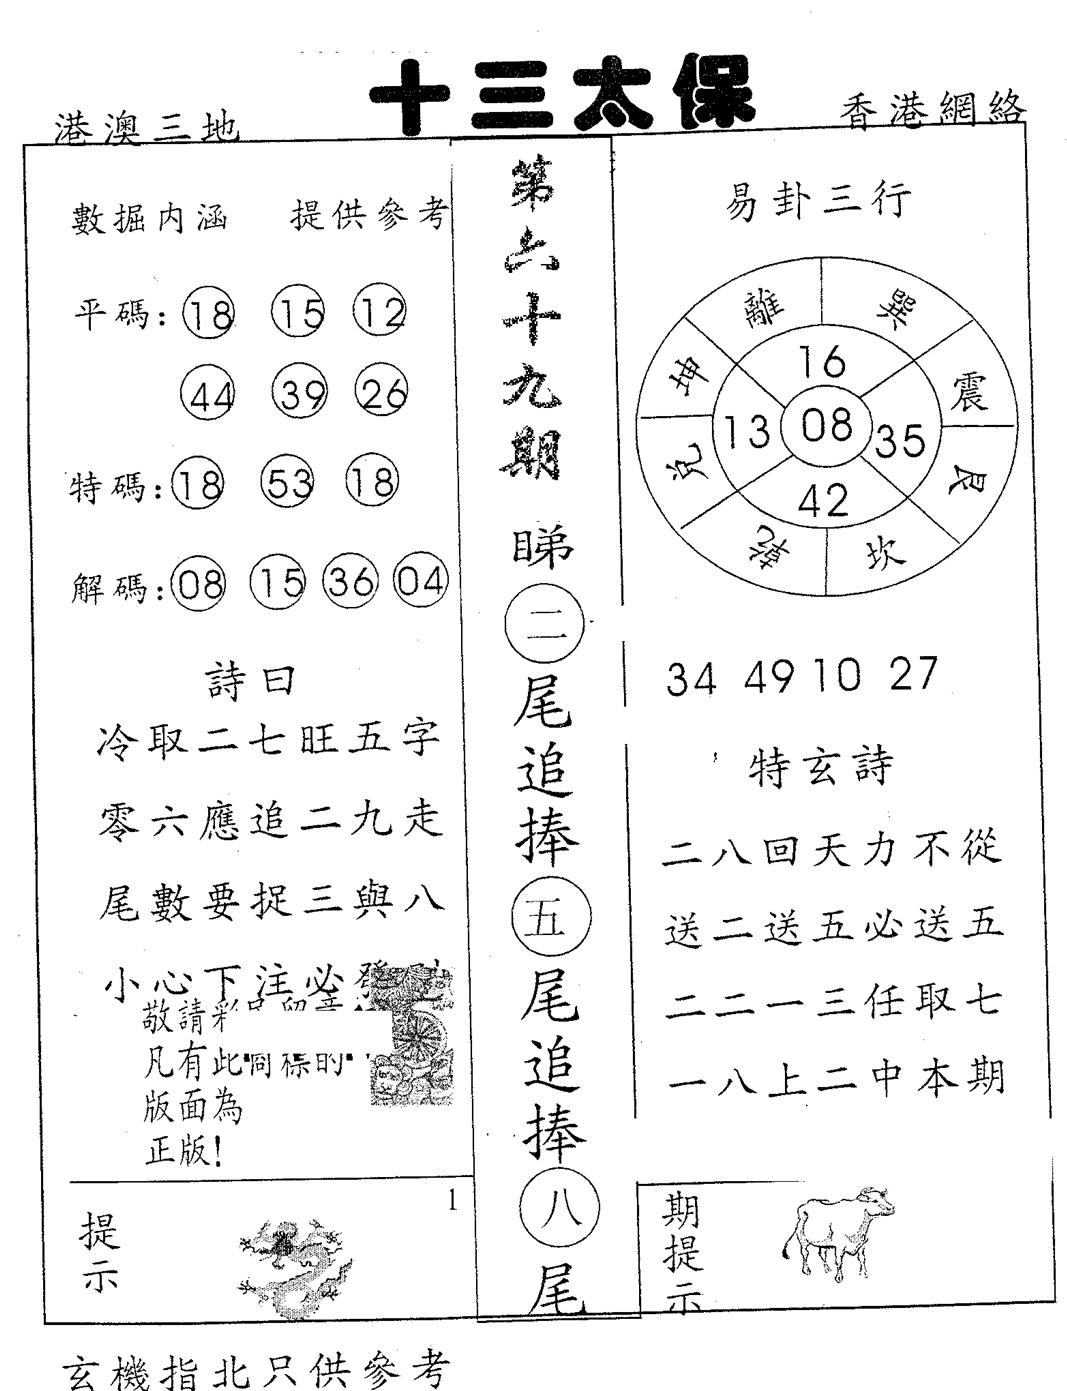 十三太保
港澳三地
香港網絡
數掘内涵 提供參考
平碼: 18 15 12
44 39 26
特碼: 18 53 18
解碼: 08 15 36 04
詩曰
冷取二七旺五字
零六應追二九走
尾數要捉三與八
小心下注必發
敬請彩民留意
凡有此商標的
版面為
正版!
提示
1
第六十九期
睇二尾追捧五尾追捧八尾
易卦三行
離 巽
坤 震
兌 艮
乾 坎
16
13 08 35
42
34 49 10 27
特玄詩
二八回天力不從
送二送五必送五
二二一三任取七
一八上二中本期
期提示
玄機指北只供參考